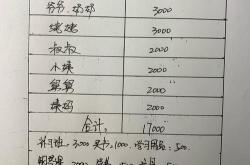 爷爷、奶奶 3000
姥姥 3000
叔叔 2000
小姨 2000
舅舅 2000
姨妈 2000
合计: 17000
补习班: 3000 买书: 1000. 学习用品: 500.